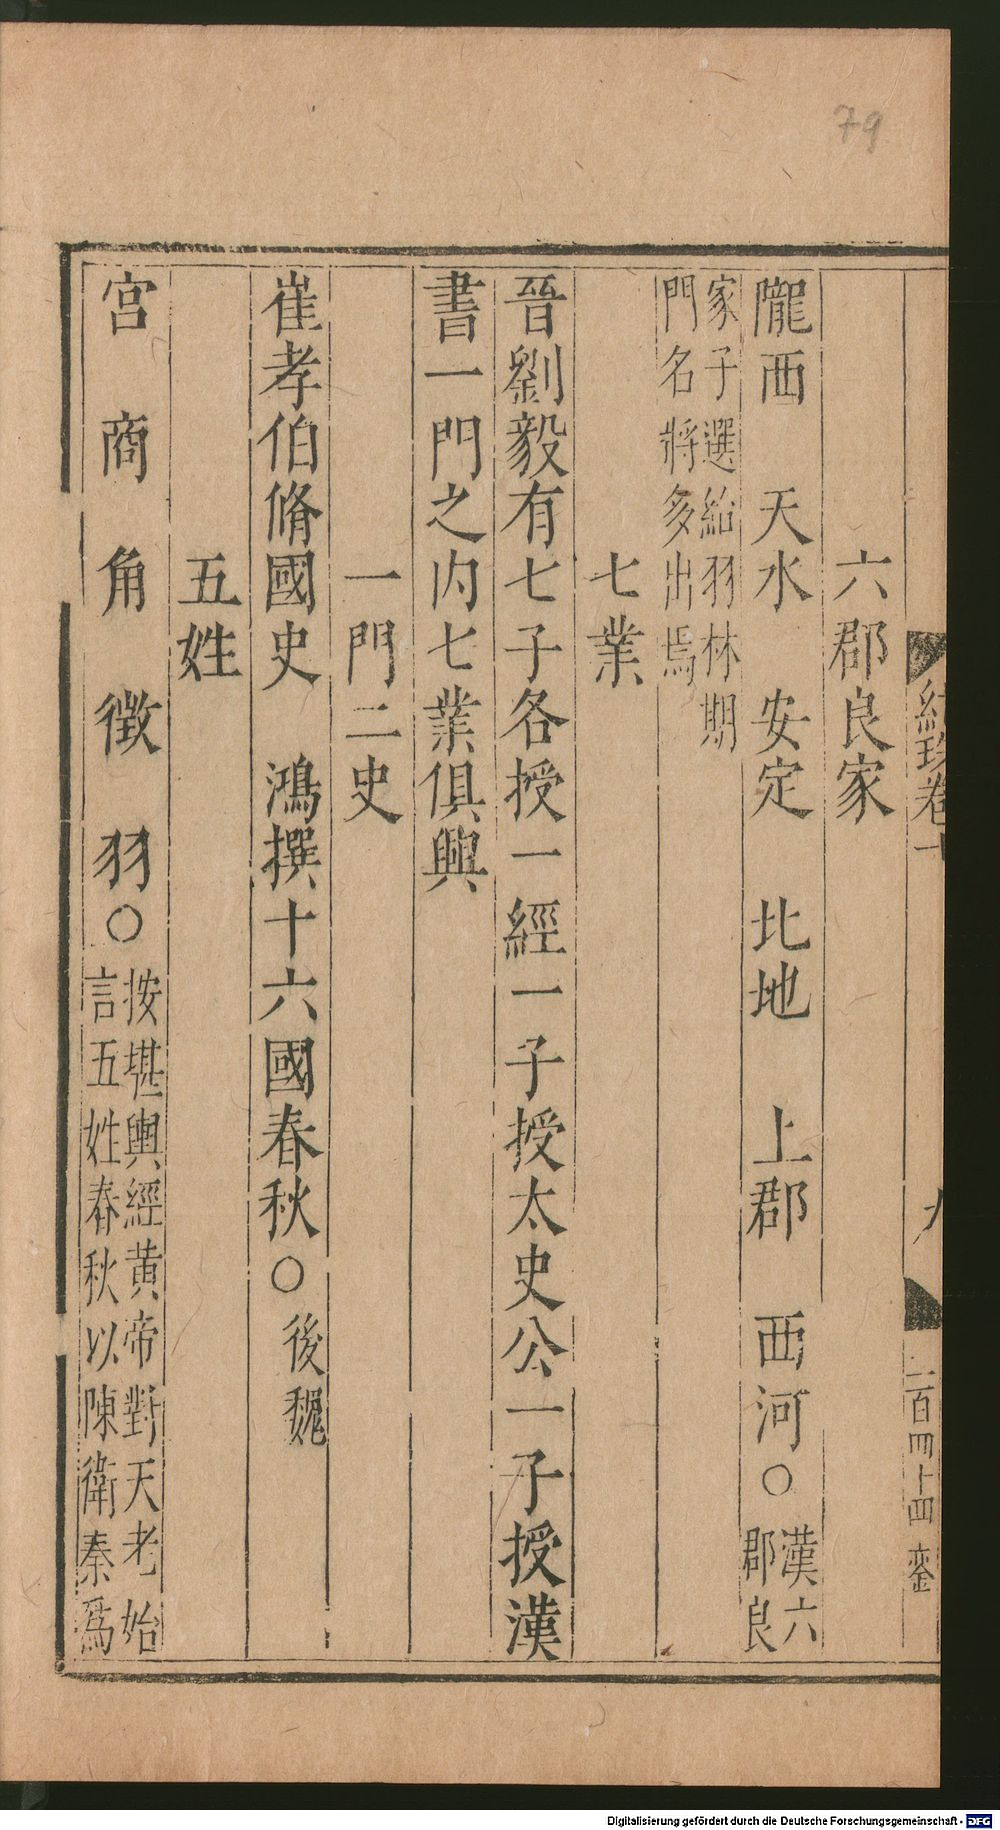 79
紀珠卷十
九
二百四十四
六郡良家
隴西　天水　安定　北地　上郡　西河○漢六
郡良
家子選給羽林期
門名將多出焉
七業
晉劉毅有七子各授一經一子授太史公一子授漢
書一門之內七業俱興
一門二史
崔孝伯脩國史　鴻撰十六國春秋○後魏
五姓
宮　商　角　徵　羽○按堪輿經黃帝對天老始
言五姓春秋以陳衛秦爲
Digitalisierung gefördert durch die Deutsche Forschungsgemeinschaft - DFG